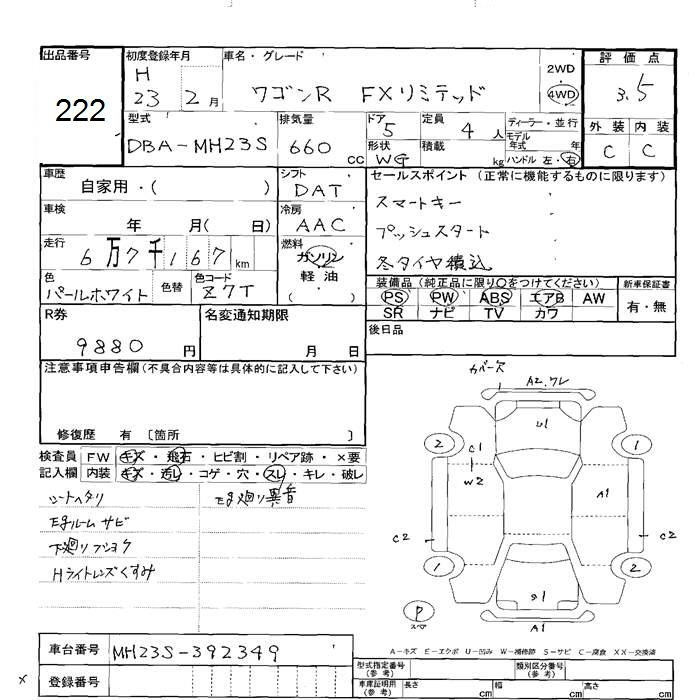 出品番号
222
初度登録年月
H
23 2月
車名・グレード
ワゴンR FXリミテッド
2WD
4WD
評価点
3.5
型式
DBA-MH23S
排気量
660 cc
ドア
5
形状
WG
定員
4人
積載
kg
ディーラー・並行
モデル
年式 年
ハンドル 左・右
外装 内装
C C
車歴
自家用・( )
シフト
DAT
セールスポイント(正常に機能するものに限ります)
スマートキー
プッシュスタート
冬タイヤ積込
車検
年 月( 日)
冷房
AAC
走行
6万7千167km
燃料
ガソリン
軽油
( )
色
パールホワイト
色替
色コード
Z7T
装備品(純正品に限り○をつけてください)
PS PW ABS エアB AW
SR ナビ TV カワ
新車保証書
有・無
R券
9880円
名変通知期限
月 日
後日品
注意事項申告欄(不具合内容等は具体的に記入して下さい)
修復歴 有 〔箇所 〕
検査員
記入欄
FW キズ・飛石・ヒビ割・リペア跡・×要
内装 キズ・汚レ・コゲ・穴・スレ・キレ・破レ
シートヘタリ
Egルームサビ
下廻りフショク
Hライトレンズくすみ
Eg廻り異音
カバース
A2.ワレ
U1
2
C1
W2
1
A1
C2
C2
1
2
P
スペア
A1
A-キズ E-エクボ U-凹み W-補修跡 S-サビ C-腐食 XX-交換済
車台番号
MH23S-392349
× 登録番号
型式指定番号
(参考)
類別区分番号
(参考)
車庫証明用
(参考)
長さ cm
幅 cm
高さ cm